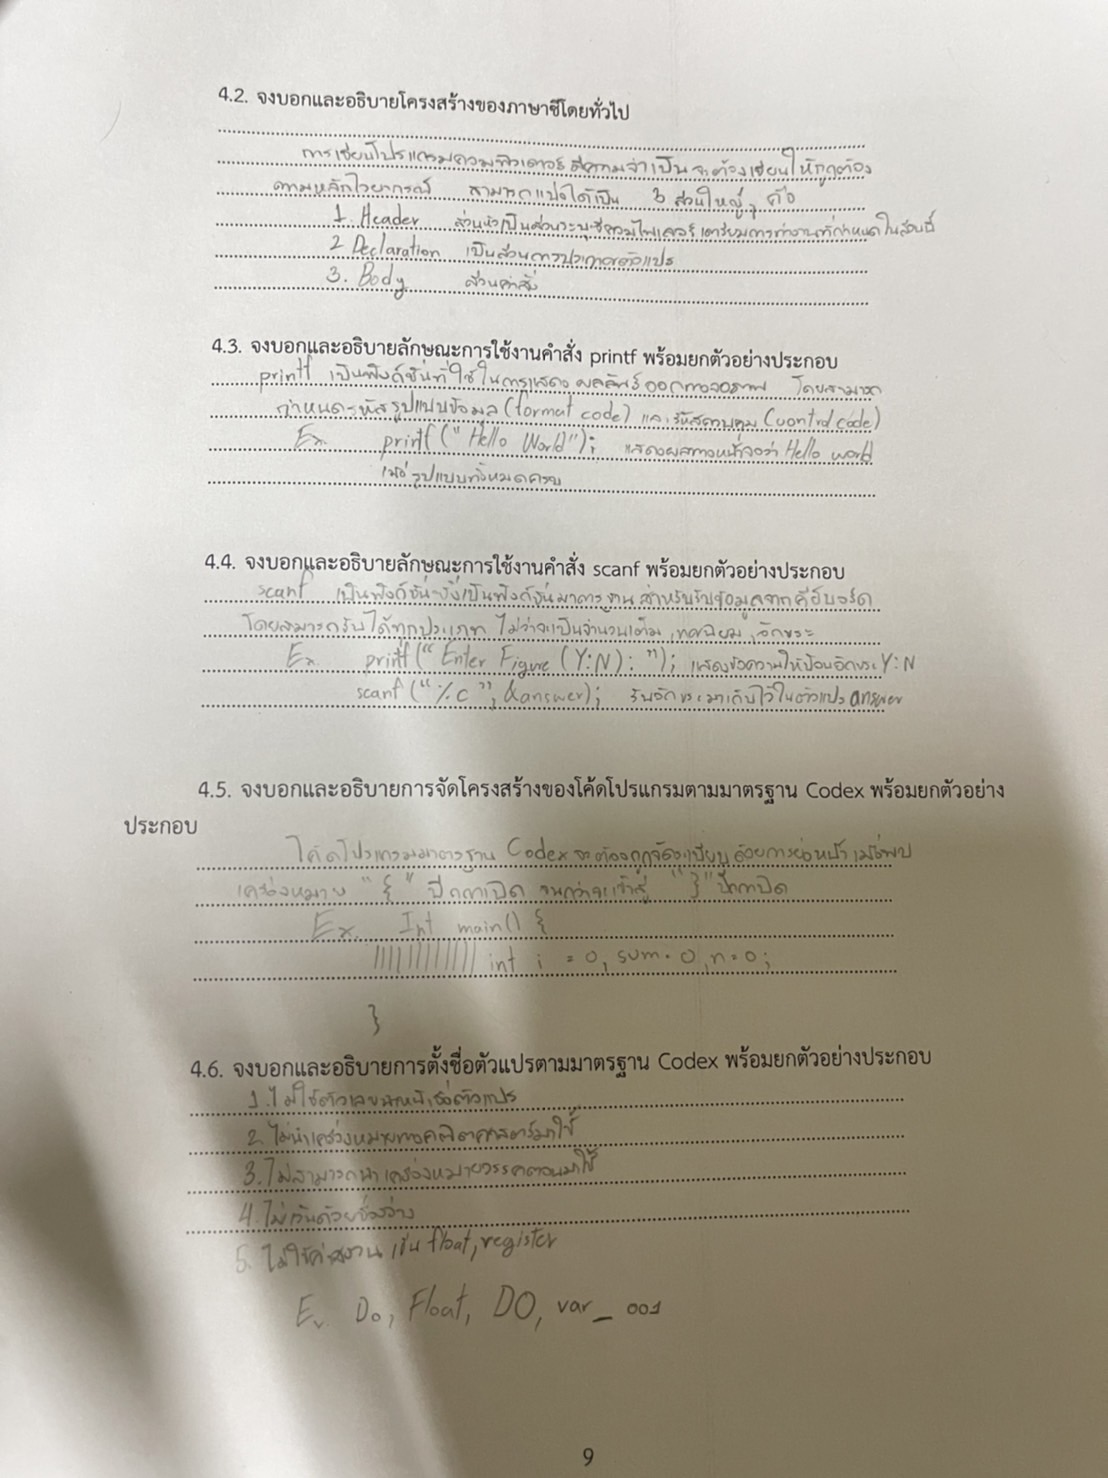 4.2. จงบอกและอธิบายโครงสร้างของภาษาซีโดยทั่วไป
การเขียนโปรแกรมคอมพิวเตอร์ มีความจำเป็น จะต้องเขียนให้ถูกต้อง
ตามหลักไวยากรณ์ สามารถแบ่งได้เป็น 3 ส่วนใหญ่ๆ คือ
1. Header ส่วนหัวเป็นส่วนระบุชื่อ เตรียมการทำงานที่กำหนดในส่วนนี้
2 Declaration เป็นส่วนการประกาศตัวแปร
3. Body ส่วนคำสั่ง
4.3. จงบอกและอธิบายลักษณะการใช้งานคำสั่ง printf พร้อมยกตัวอย่างประกอบ
printf เป็นฟังก์ชันที่ใช้ในการแสดงผลลัพธ์ออกทางจอภาพ โดยสามารถ
กำหนดรหัสรูปแบบข้อมูล (format code) และรหัสควบคุม (control code)
Ex. printf ("Hello World"); แสดงผลทางหน้าจอว่า Hello world
รูปแบบทั้งหมดครบ
4.4. จงบอกและอธิบายลักษณะการใช้งานคำสั่ง scanf พร้อมยกตัวอย่างประกอบ
scanf เป็นฟังก์ชันซึ่งเป็นฟังก์ชันมาตรฐาน สำหรับรับข้อมูลจากคีย์บอร์ด
โดยสามารถรับได้ทุกประเภท ไม่ว่าจะเป็นจำนวนเต็ม, ทศนิยม, อักขระ
Ex. printf ("Enter Figure (Y:N): "); แสดงข้อความให้ป้อนอักขระ Y:N
scanf ("%c", &answer); รับอักขระมาเก็บไว้ในตัวแปร answer
4.5. จงบอกและอธิบายการจัดโครงสร้างของโค้ดโปรแกรมตามมาตรฐาน Codex พร้อมยกตัวอย่าง
ประกอบ
โค้ดโปรแกรมมาตรฐาน Codex จะต้องถูกจัดระเบียบด้วยการย่อหน้า เมื่อพบ
เครื่องหมาย "{" ปีกกาเปิด จนกว่าจะเข้าสู่ "}" ปีกกาปิด
Ex. Int main() {
int i = 0, sum = 0, n = 0;
}
4.6. จงบอกและอธิบายการตั้งชื่อตัวแปรตามมาตรฐาน Codex พร้อมยกตัวอย่างประกอบ
1. ไม่ใช้ตัวเลขนำหน้าชื่อตัวแปร
2. ไม่นำเครื่องหมายทางคณิตศาสตร์มาใช้
3. ไม่สามารถนำเครื่องหมายวรรคตอนมาใช้
4. ไม่เว้นด้วยช่องว่าง
5. ไม่ใช้คำสงวน เช่น float, register
Ex. Do, Float, DO, var_001
9